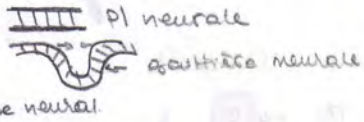 Pl neurale
gouttière neurale
e neural